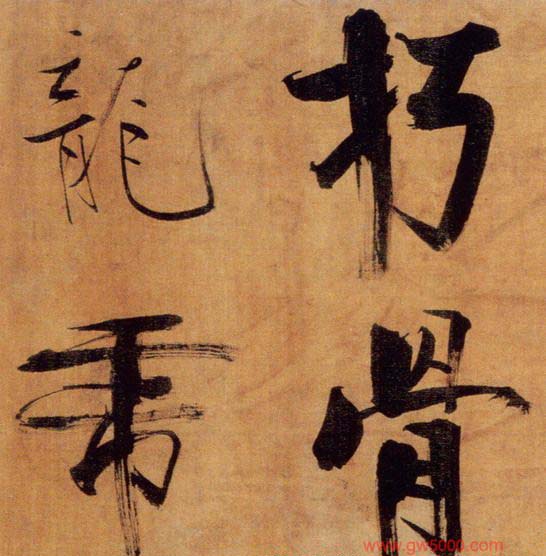 朽骨
龍虎
www.gw5000.com